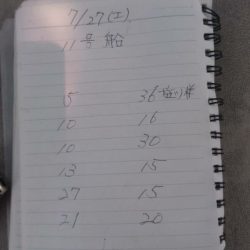 7/27(土)
11号船
5 36
10 16
10 30
13 15
27 15
21 20